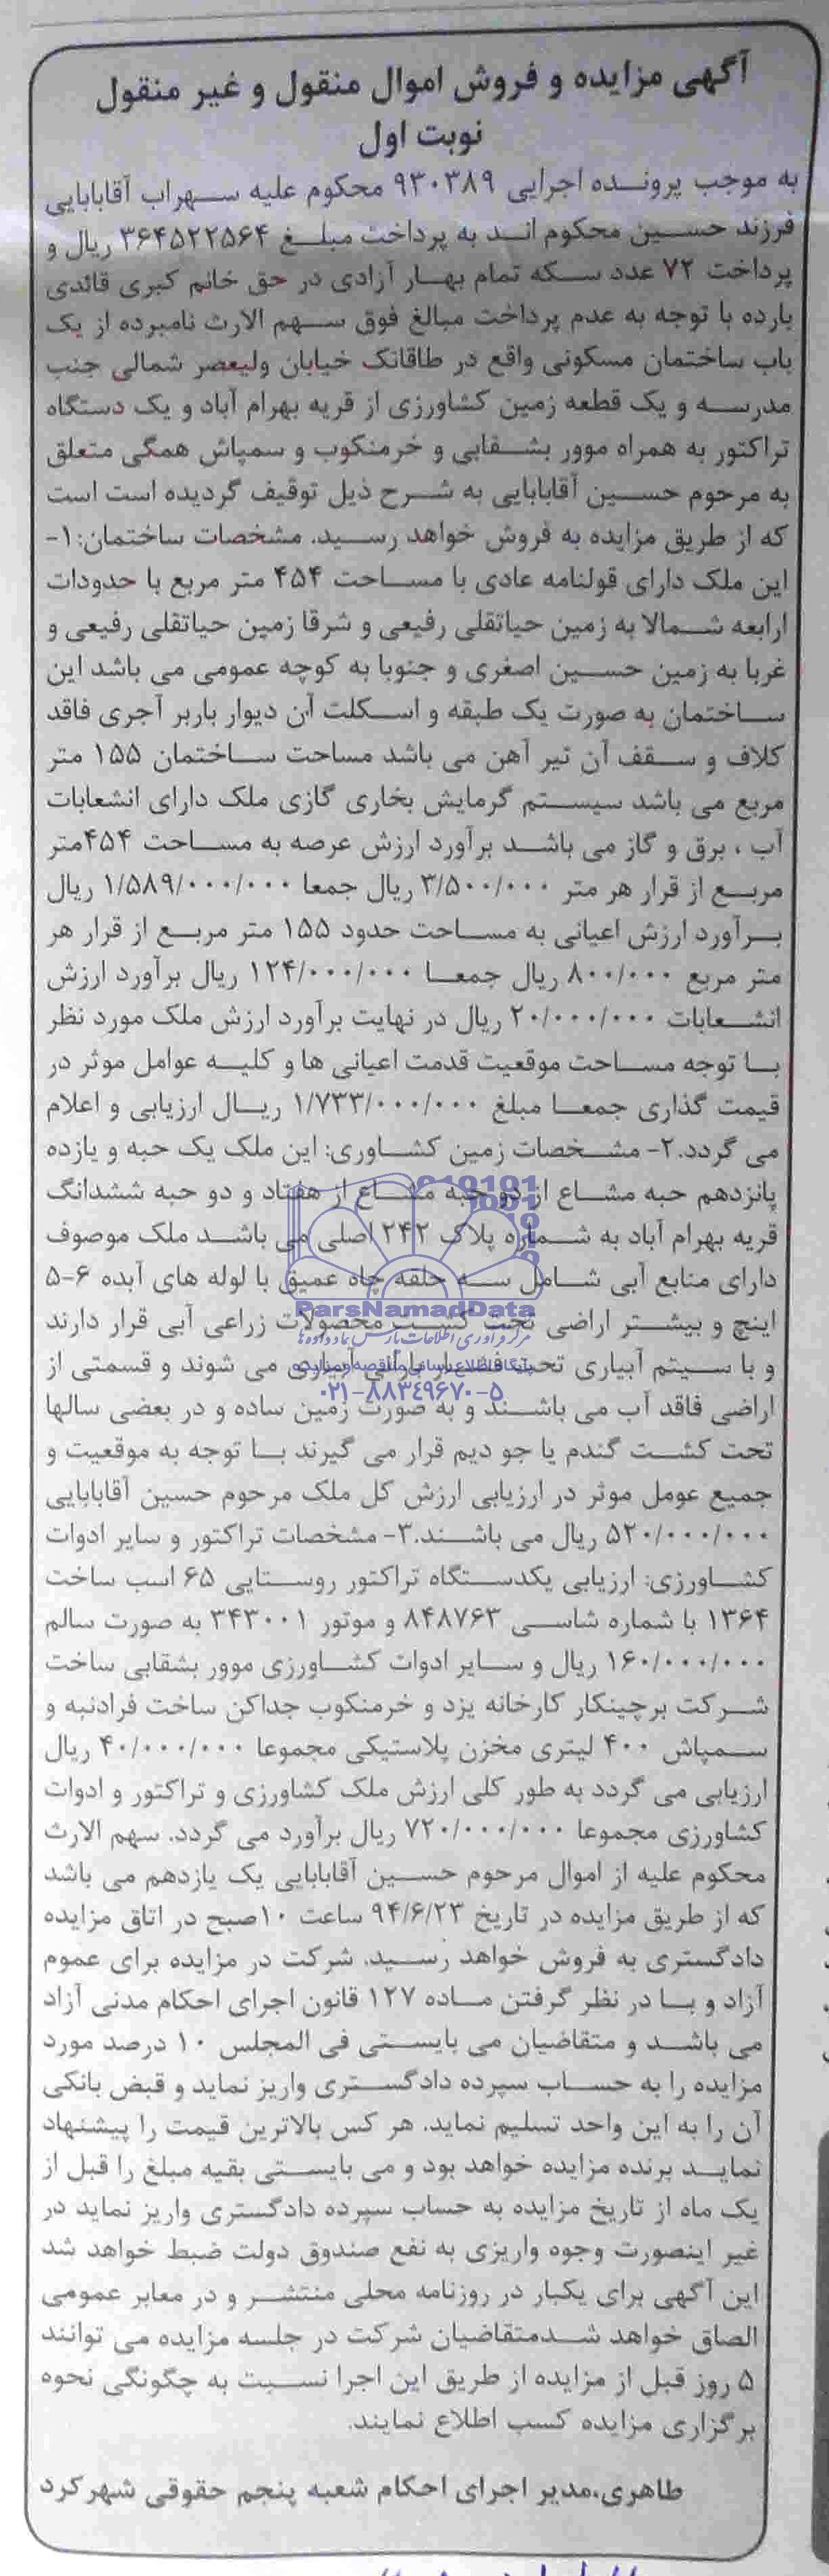 آگهی مزایده و فروش اموال منقول و غیر منقول
نوبت اول
به موجب پرونده اجرایی ۹۳۰۳۸۹ محکوم علیه سهراب آقابابایی
فرزند حسین محکوم اند به پرداخت مبلغ ۳۶۴۵۲۲۵۶۴ ریال و
پرداخت ۷۲ عدد سکه تمام بهار آزادی در حق خانم کبری قائدی
بارده با توجه به عدم پرداخت مبالغ فوق سهم الارث نامبرده از یک
باب ساختمان مسکونی واقع در طاقانک خیابان ولیعصر شمالی جنب
مدرسه و یک قطعه زمین کشاورزی از قریه بهرام آباد و یک دستگاه
تراکتور به همراه موور بشقابی و خرمنکوب و سمپاش همگی متعلق
به مرحوم حسین آقابابایی به شرح ذیل توقیف گردیده است است
که از طریق مزایده به فروش خواهد رسید. مشخصات ساختمان:۱-
این ملک دارای قولنامه عادی با مساحت ۴۵۴ متر مربع با حدودات
اربعه شمالا به زمین حیاتقلی رفیعی و شرقا زمین حیاتقلی رفیعی و
غربا به زمین حسین اصغری و جنوبا به کوچه عمومی می باشد این
ساختمان به صورت یک طبقه و اسکلت آن دیوار باربر آجری فاقد
کلاف و سقف آن تیر آهن می باشد مساحت ساختمان ۱۵۵ متر
مربع می باشد سیستم گرمایش بخاری گازی ملک دارای انشعابات
آب ، برق و گاز می باشد برآورد ارزش عرصه به مساحت ۴۵۴متر
مربع از قرار هر متر ۳/۵۰۰/۰۰۰ ریال جمعا ۱/۵۸۹/۰۰۰/۰۰۰ ریال
برآورد ارزش اعیانی به مساحت حدود ۱۵۵ متر مربع از قرار هر
متر مربع ۸۰۰/۰۰۰ ریال جمعا ۱۲۴/۰۰۰/۰۰۰ ریال برآورد ارزش
انشعابات ۲۰/۰۰۰/۰۰۰ ریال در نهایت برآورد ارزش ملک مورد نظر
با توجه مساحت موقعیت قدمت اعیانی ها و کلیه عوامل موثر در
قیمت گذاری جمعا مبلغ ۱/۷۳۳/۰۰۰/۰۰۰ ریال ارزیابی و اعلام
می گردد.۲- مشخصات زمین کشاوری: این ملک یک حبه و یازده
پانزدهم حبه مشاع از دو حبه مشاع از هفتاد و دو حبه ششدانگ
قریه بهرام آباد به شماره پلاک ۲۴۲ اصلی می باشد ملک موصوف
دارای منابع آبی شامل سه حلقه چاه عمیق با لوله های آبده ۶-۵
ParsNamadData
اینچ و بیشتر اراضی تحت کشت محصولات زراعی آبی قرار دارند
مرکز فرآوری اطلاعات پارس نماد داده ها
و با سیتم آبیاری تحت فشار بارانی آبیاری می شوند و قسمتی از
پایگاه اطلاع رسانی مناقصه و مزایده
۰۲۱-۸۸۳۴۹۶۷۰-۵
اراضی فاقد آب می باشند و به صورت زمین ساده و در بعضی سالها
تحت کشت گندم یا جو دیم قرار می گیرند با توجه به موقعیت و
جمیع عومل موثر در ارزیابی ارزش کل ملک مرحوم حسین آقابابایی
۵۲۰/۰۰۰/۰۰۰ ریال می باشند.۳- مشخصات تراکتور و سایر ادوات
کشاورزی: ارزیابی یکدستگاه تراکتور روستایی ۶۵ اسب ساخت
۱۳۶۴ با شماره شاسی ۸۴۸۷۶۳ و موتور ۳۴۳۰۰۱ به صورت سالم
۱۶۰/۰۰۰/۰۰۰ ریال و سایر ادوات کشاورزی موور بشقابی ساخت
شرکت برچینکار کارخانه یزد و خرمنکوب جداکن ساخت فرادنبه و
سمپاش ۴۰۰ لیتری مخزن پلاستیکی مجموعا ۴۰/۰۰۰/۰۰۰ ریال
ارزیابی می گردد به طور کلی ارزش ملک کشاورزی و تراکتور و ادوات
کشاورزی مجموعا ۷۲۰/۰۰۰/۰۰۰ ریال برآورد می گردد. سهم الارث
محکوم علیه از اموال مرحوم حسین آقابابایی یک یازدهم می باشد
که از طریق مزایده در تاریخ ۹۴/۶/۲۳ ساعت ۱۰صبح در اتاق مزایده
دادگستری به فروش خواهد رسید. شرکت در مزایده برای عموم
آزاد و با در نظر گرفتن ماده ۱۲۷ قانون اجرای احکام مدنی آزاد
می باشد و متقاضیان می بایستی فی المجلس ۱۰ درصد مورد
مزایده را به حساب سپرده دادگستری واریز نماید و قبض بانکی
آن را به این واحد تسلیم نماید. هر کس بالاترین قیمت را پیشنهاد
نماید برنده مزایده خواهد بود و می بایستی بقیه مبلغ را قبل از
یک ماه از تاریخ مزایده به حساب سپرده دادگستری واریز نماید در
غیر اینصورت وجوه واریزی به نفع صندوق دولت ضبط خواهد شد
این آگهی برای یکبار در روزنامه محلی منتشر و در معابر عمومی
الصاق خواهد شدمتقاضیان شرکت در جلسه مزایده می توانند
۵ روز قبل از مزایده از طریق این اجرا نسبت به چگونگی نحوه
برگزاری مزایده کسب اطلاع نمایند.
طاهری،مدیر اجرای احکام شعبه پنجم حقوقی شهرکرد